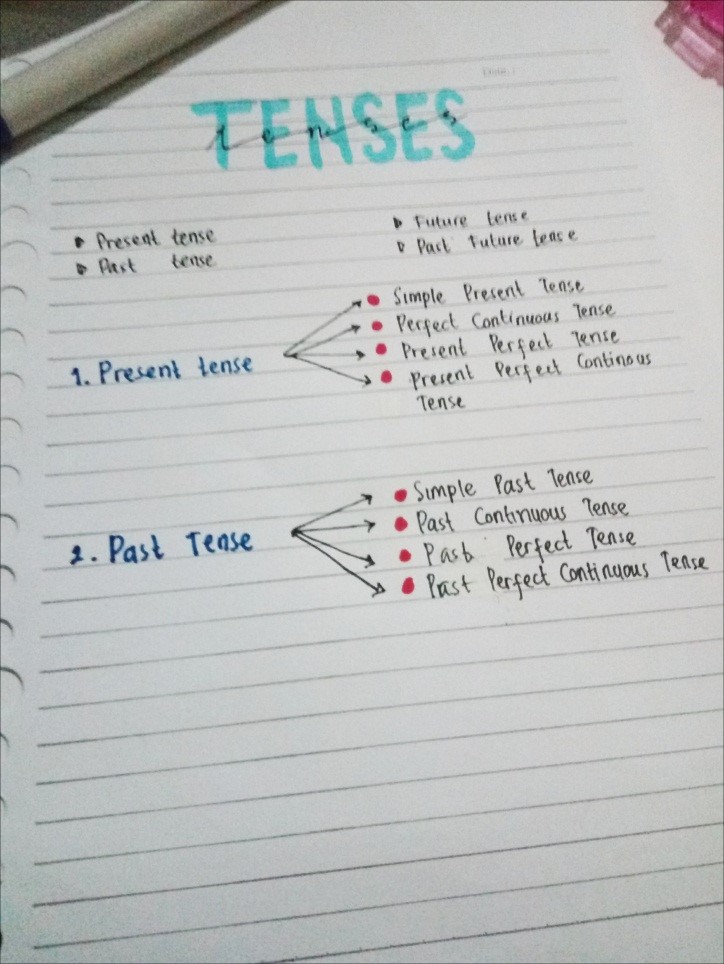 TENSES
tenses
Present tense
Past tense
Future tense
Past Future tense
1. Present tense
Simple Present Tense
Perfect Continuous Tense
Present Perfect Tense
Present Perfect Continous
Tense
2. Past Tense
Simple Past Tense
Past Continuous Tense
Past Perfect Tense
Past Perfect Continuous Tense